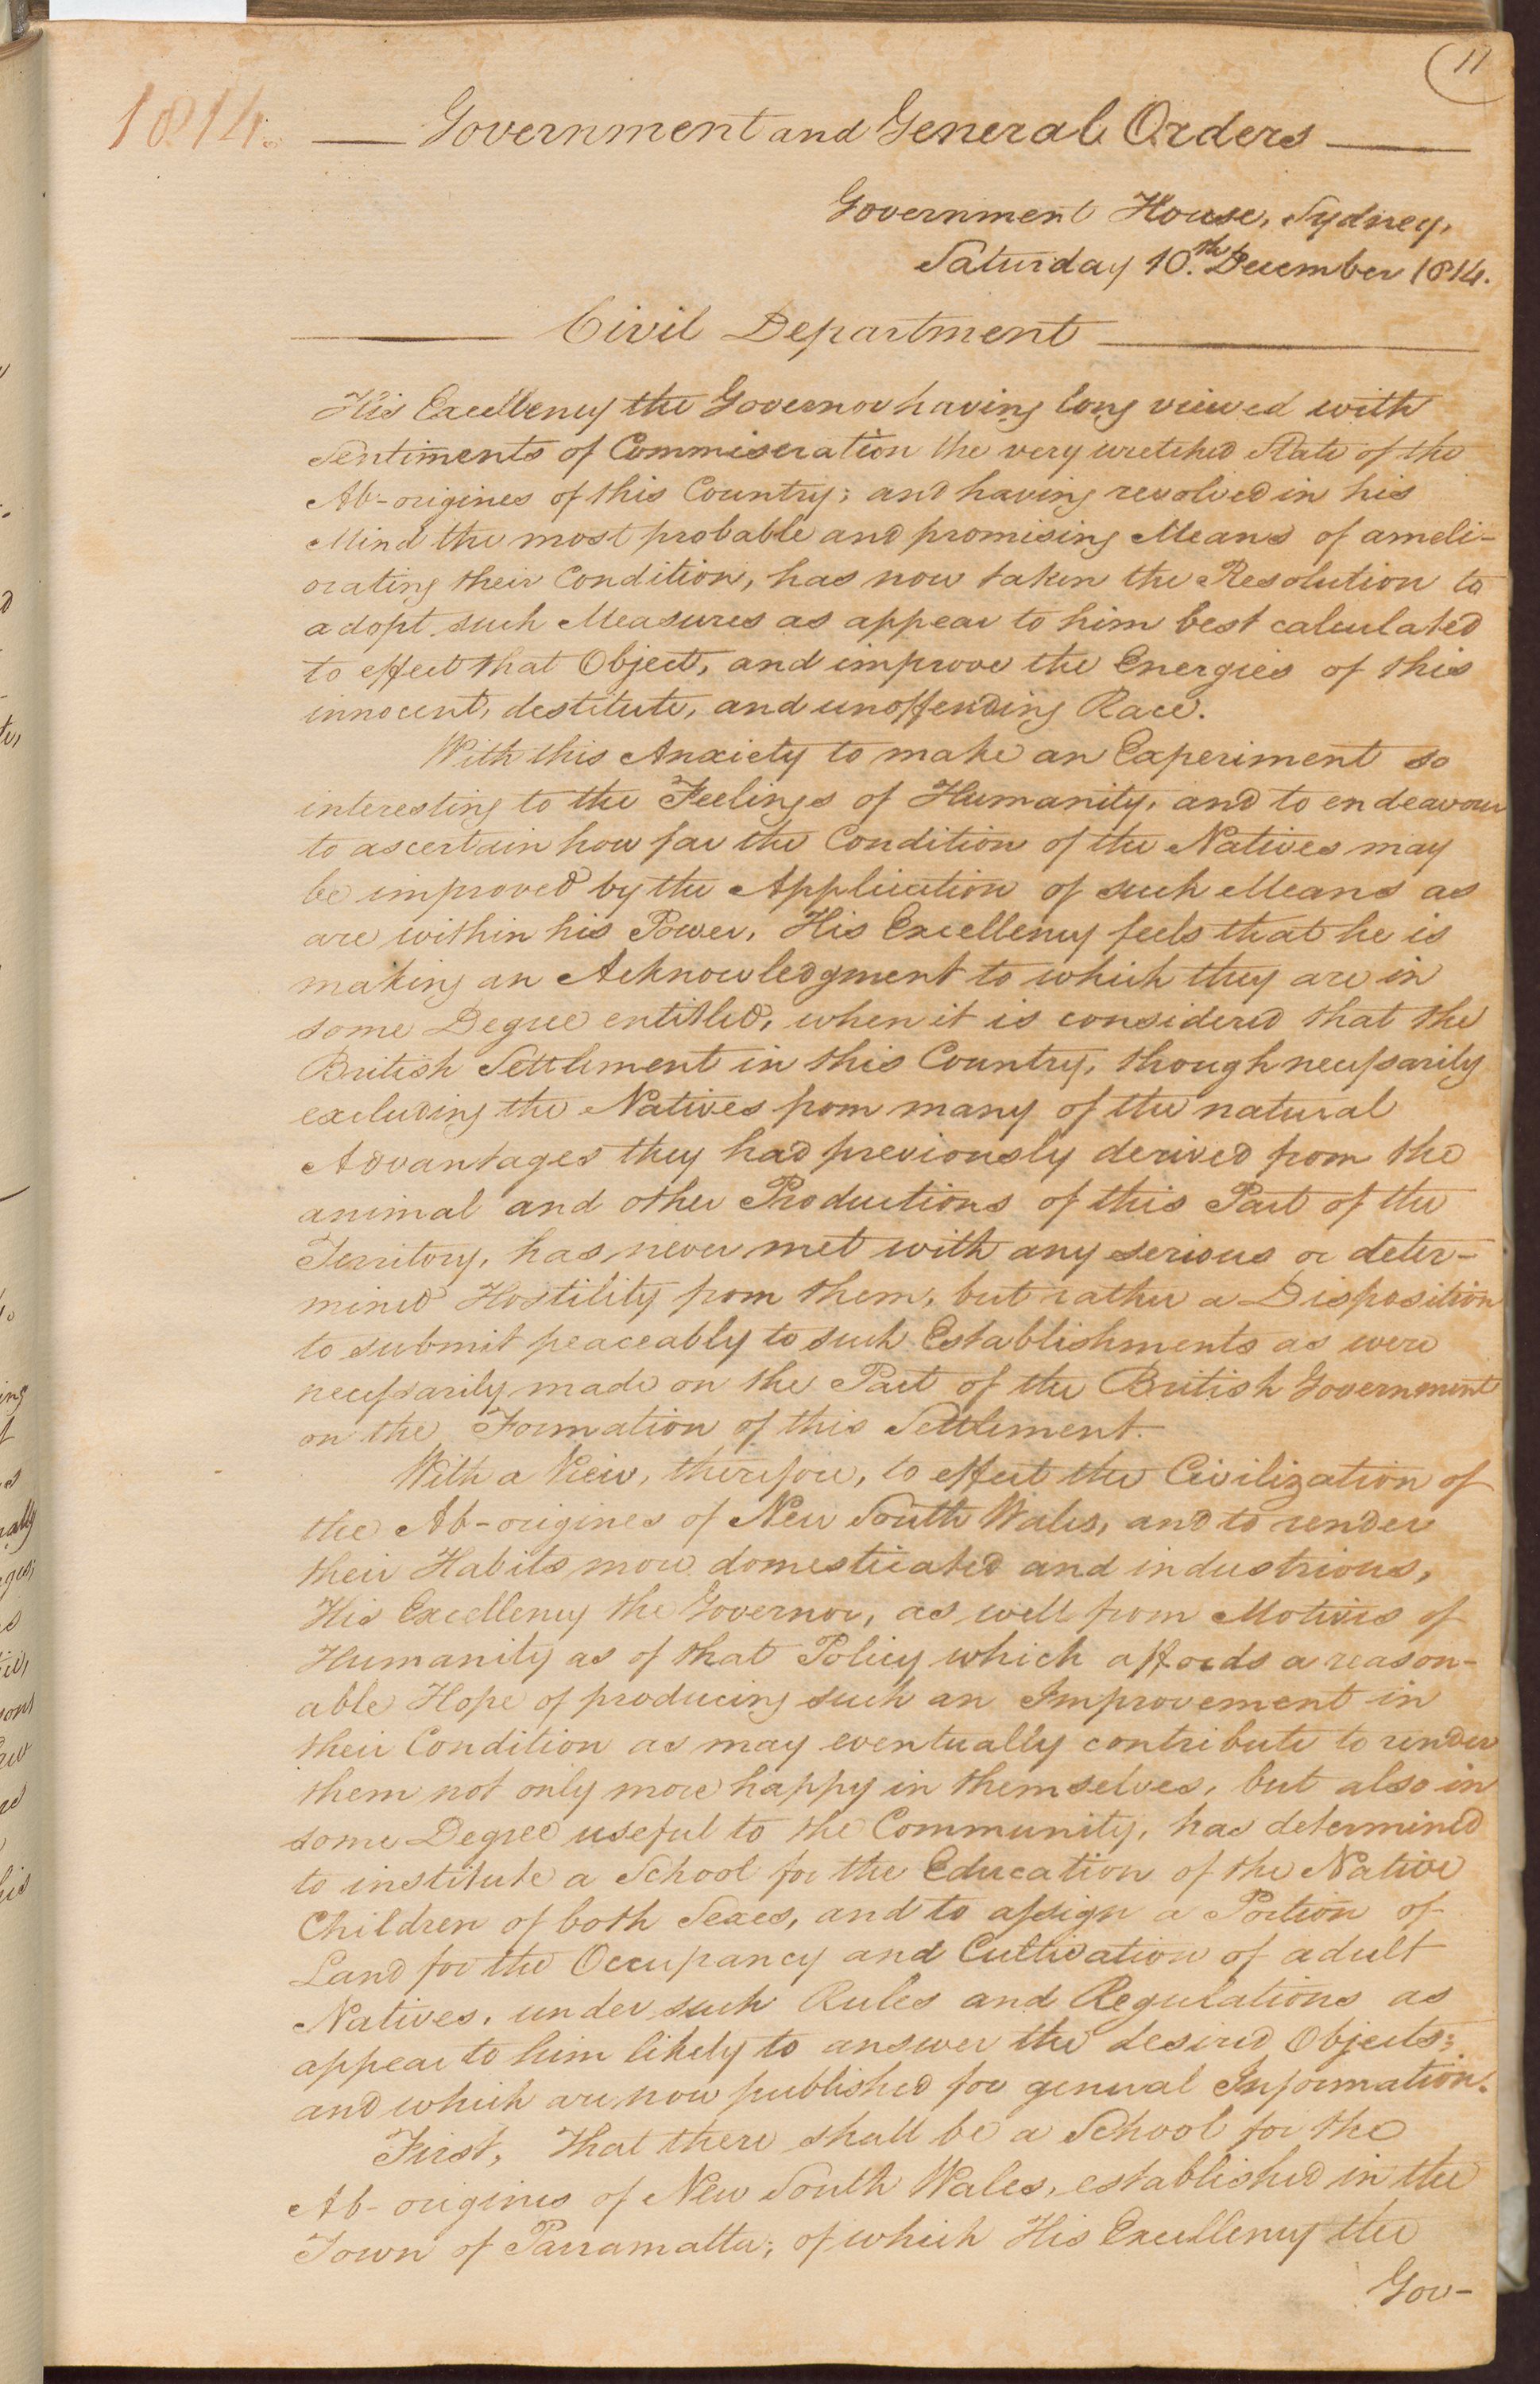 11
1814.
Government and General Orders
Government House, Sydney,
Saturday 10.th December 1814.
Civil Department
His Excellency the Governor having long viewed with
Sentiments of Commiseration the very wretched State of the
Ab-origines of this Country; and having revolved in his
Mind the most probable and promising Means of ameli-
orating their Condition, has now taken the Resolution to
adopt such Measures as appear to him best calculated
to effect that Object, and improve the Energies of this
innocent, destitute, and unoffending Race.
With this Anxiety to make an Experiment so
interesting to the Feelings of Humanity, and to endeavour
to ascertain how far the Condition of the Natives may
be improved by the Application of such Means as
are within his Power, His Excellency feels that he is
making an Acknowledgment to which they are in
some Degree entitled, when it is considered that the
British Settlement in this Country, though necessarily
excluding the Natives from many of the natural
Advantages they had previously derived from the
animal and other Productions of this Part of the
Territory, has never met with any serious or deter-
mined Hostility from them, but rather a Disposition
to submit peaceably to such Establishments as were
necessarily made on the Part of the British Government
on the Formation of this Settlement.
With a View, therefore, to effect the Civilization of
the Ab-origines of New South Wales, and to render
their Habits more domesticated and industrious,
His Excellency the Governor, as well from Motives of
Humanity as of that Policy which affords a reason-
able Hope of producing such an Improvement in
their Condition as may eventually contribute to render
them not only more happy in themselves, but also in
some Degree useful to the Community, has determined
to institute a School for the Education of the Native
Children of both Sexes, and to assign a Portion of
Land for the Occupancy and Cultivation of adult
Natives, under such Rules and Regulations as
appear to him likely to answer the desired Objects;
and which are now published for general Information.
First, That there shall be a School for the
Ab-origines of New South Wales, established in the
Town of Parramatta; of which His Excellency the
Gov-